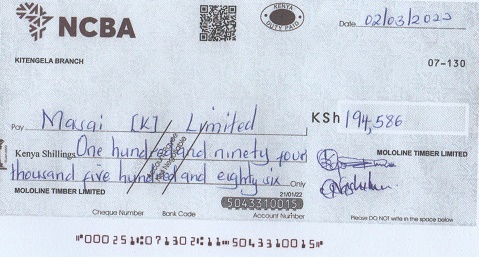 NCBA
KENYA
DUTY PAID
Date 02/03/2022
KITENGELA BRANCH
07-130
Pay Masai [K] Limited
KSh 194,586
Kenya Shillings One hundred and ninety four
thousand five hundred and eighty six Only
MOLOLINE TIMBER LIMITED
21/01/22
MOLOLINE TIMBER LIMITED
5043310015
Cheque Number Bank Code Account Number
Please DO NOT write in the space below
"000251"071302"11"5043310015"